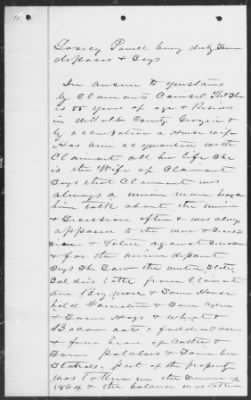 Powell being duly
deposes & Says
In answer to questions
by Claimants Counsel that She
is 55 years of age & Resides
in DeKalb County Georgia &
by occupation a House wife
Has been acquainted with
Claimant all her life She
is the Wife of Claimant
Says that Claimant was
always a Union man heard
him talk about the Union
& Secession often & was always
opposed to the war &
& Voted against Secession
& for the Union deponent
Says She Saw the United States
Soldiers take from Claimant
one Bay mare & Some House
hold Furniture & Some
& Some Hogs & Wheat
Bacon oats & fodder & corn
& four head of Cattle &
Some Potatoes &
part of the property
was taken in the Summer of
1864 & the balance was taken